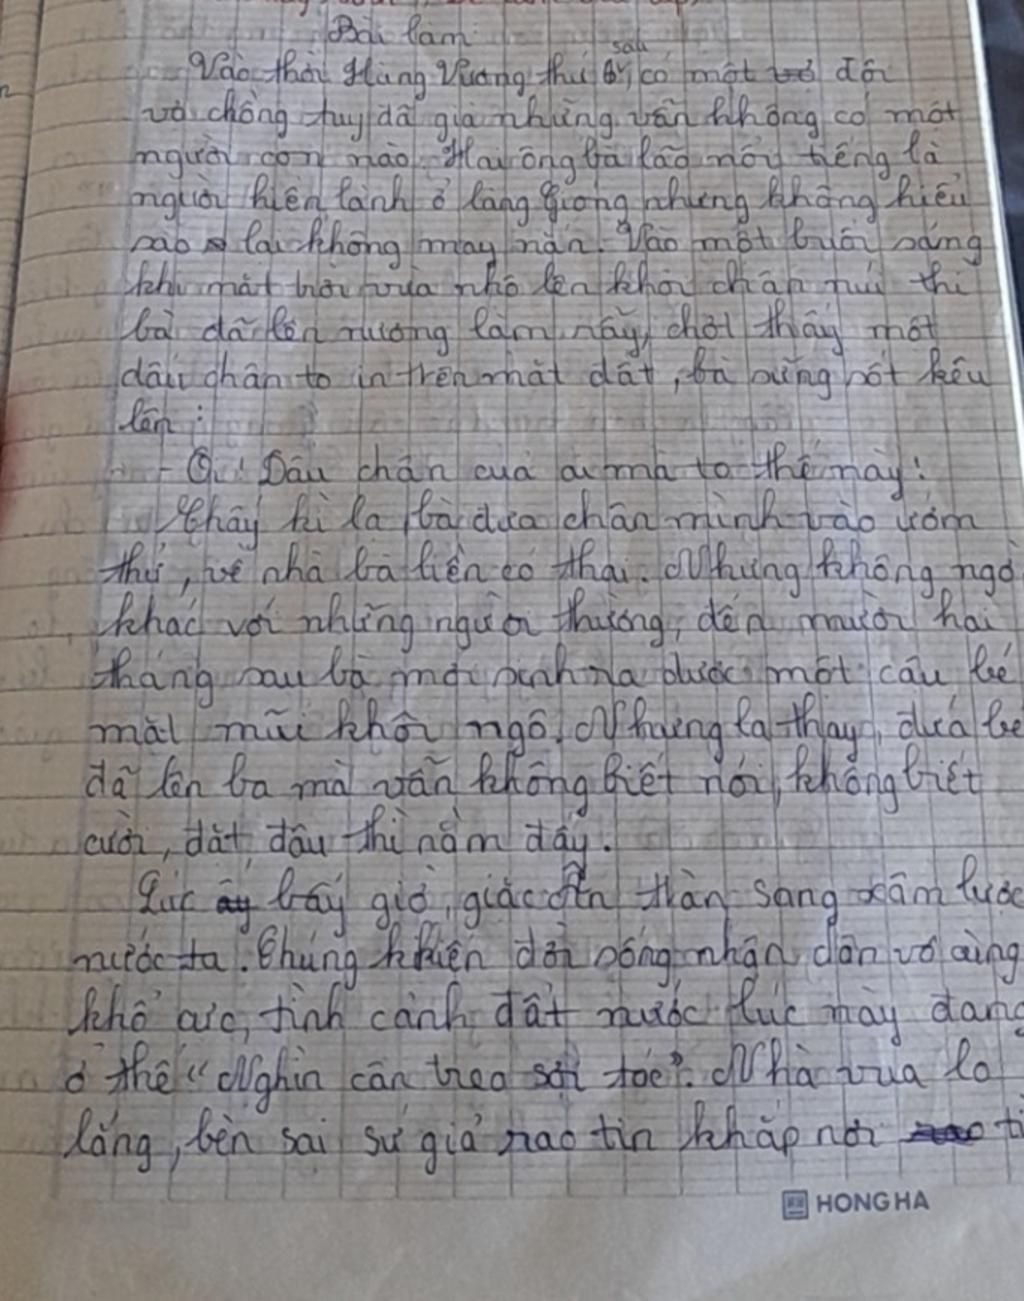 Bài làm
Vào thời Hùng Vương thứ 6, sáu có một đôi
vợ chồng tuy đã già nhưng vẫn không có một
người con nào. Hai ông bà lão nổi tiếng là
người hiền lành ở làng Gióng nhưng không hiểu
sao lại không may mắn. Vào một buổi sáng
khi mặt trời vừa nhô lên khỏi chân núi thì
bà đã lên nương làm rẫy, chợt thấy một
dấu chân to in trên mặt đất, bà sửng sốt kêu
lên:
- Ôi! Dấu chân của ai mà to thế này!
Thấy kì lạ, bà đưa chân mình vào ướm
thử, về nhà bà liền có thai. Nhưng không ngờ
khác với những người thường, đến mười hai
tháng sau bà mới sinh ra được một cậu bé
mặt mũi khôi ngô. Nhưng lạ thay, đứa bé
đã lên ba mà vẫn không biết nói, không biết
cười, đặt đâu thì nằm đấy.
Lúc bấy giờ, giặc Ân tràn sang xâm lược
nước ta. Chúng khiến đời sống nhân dân vô cùng
khổ cực, tình cảnh đất nước lúc này đang
ở thế "Nghìn cân treo sợi tóc". Nhà vua lo
lắng, bèn sai sứ giả rao tin khắp nơi
HONG HA